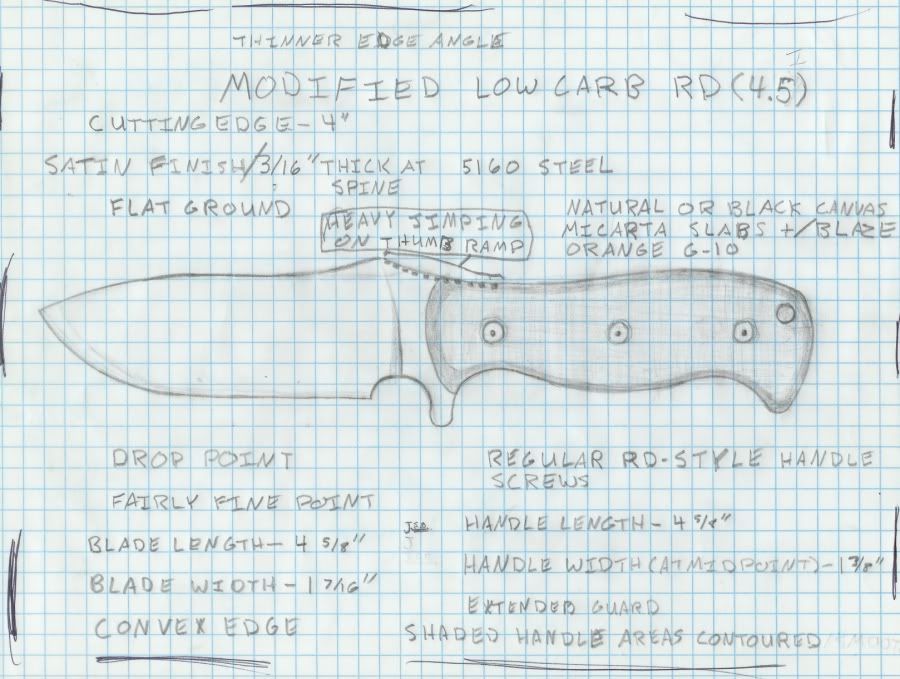 THINNER EDGE ANGLE
MODIFIED LOW CARB RD (4.5)
CUTTING EDGE - 4"
SATIN FINISH/3/16" THICK AT SPINE
5160 STEEL
FLAT GROUND
HEAVY JIMPING
ON THUMB RAMP
NATURAL OR BLACK CANVAS
MICARTA SLABS +/BLAZE
ORANGE G-10
DROP POINT
FAIRLY FINE POINT
BLADE LENGTH - 4 5/8"
BLADE WIDTH - 1 7/16"
CONVEX EDGE
REGULAR RD-STYLE HANDLE
SCREWS
HANDLE LENGTH - 4 5/8"
HANDLE WIDTH (AT MIDPOINT) - 1 3/8"
EXTENDED GUARD
SHADED HANDLE AREAS CONTOURED